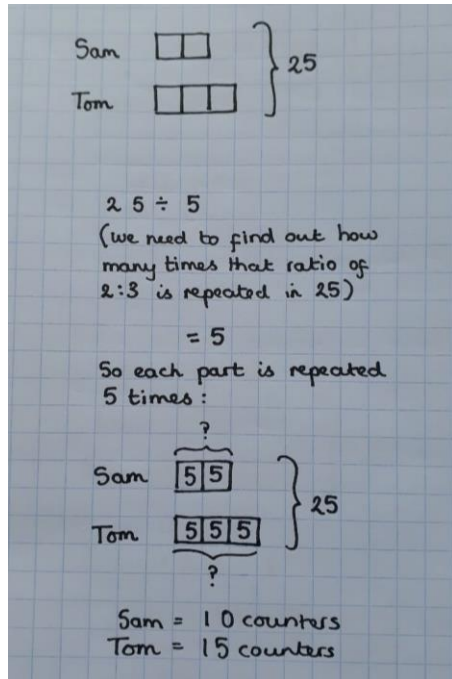 Sam 25
Tom
25 ÷ 5
(we need to find out how
many times that ratio of
2:3 is repeated in 25)
= 5
So each part is repeated
5 times:
?
Sam 5 5
25
Tom 5 5 5
?
Sam = 10 counters
Tom = 15 counters